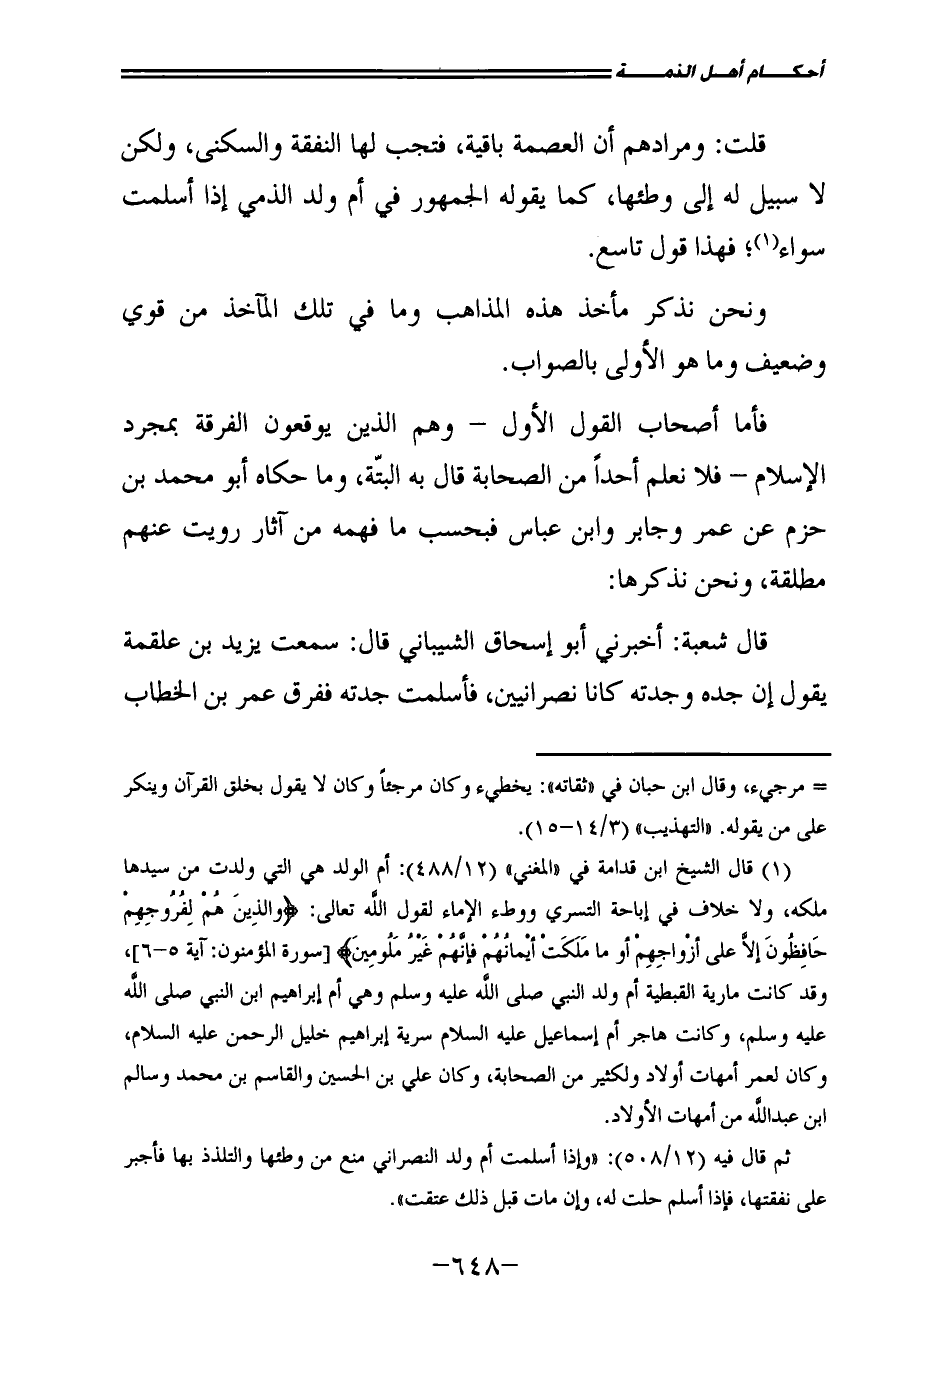 أحكـــــام أهـــل الذمـــــة
قلت: ومرادهم أن العصمة باقية، فتجب لها النفقة والسكنى، ولكن
لا سبيل له إلى وطئها، كما يقوله الجمهور في أم ولد الذمي إذا أسلمت
سواء(١)؛ فهذا قول تاسع.
ونحن نذكر مأخذ هذه المذاهب وما في تلك المآخذ من قوي
وضعيف وما هو الأولى بالصواب.
فأما أصحاب القول الأول – وهم الذين يوقعون الفرقة بمجرد
الإسلام – فلا نعلم أحداً من الصحابة قال به البتّة، وما حكاه أبو محمد بن
حزم عن عمر وجابر وابن عباس فبحسب ما فهمه من آثار رويت عنهم
مطلقة، ونحن نذكرها:
قال شعبة: أخبرني أبو إسحاق الشيباني قال: سمعت يزيد بن علقمة
يقول إن جده وجدته كانا نصرانيين، فأسلمت جدته ففرق عمر بن الخطاب
= مرجيء، وقال ابن حبان في «ثقاته»: يخطيء وكان مرجئاً وكان لا يقول بخلق القرآن وينكر
على من يقوله. «التهذيب» (١٤/٣–١٥).
(١) قال الشيخ ابن قدامة في «المغني» (٤٨٨/١٢): أم الولد هي التي ولدت من سيدها
ملكه، ولا خلاف في إباحة التسري ووطء الإماء لقول اللَّه تعالى: ﴿والذِينَ هُمْ لِفُرُوجِهِمْ
حَافِظُونَ إلاَّ على أزْواجِهِمْ أو ما مَلَكَتْ أيْمانُهُمْ فإنَّهُمْ غَيْرُ مَلُومِينَ﴾ [سورة المؤمنون: آية ٥–٦]،
وقد كانت مارية القبطية أم ولد النبي صلى اللَّه عليه وسلم وهي أم إبراهيم ابن النبي صلى اللَّه
عليه وسلم، وكانت هاجر أم إسماعيل عليه السلام سرية إبراهيم خليل الرحمن عليه السلام،
وكان لعمر أمهات أولاد ولكثير من الصحابة، وكان علي بن الحسين والقاسم بن محمد وسالم
ابن عبداللَّه من أمهات الأولاد.
ثم قال فيه (٥٠٨/١٢): «وإذا أسلمت أم ولد النصراني منع من وطئها والتلذذ بها فأجبر
على نفقتها، فإذا أسلم حلت له، وإن مات قبل ذلك عتقت».
–٦٤٨–